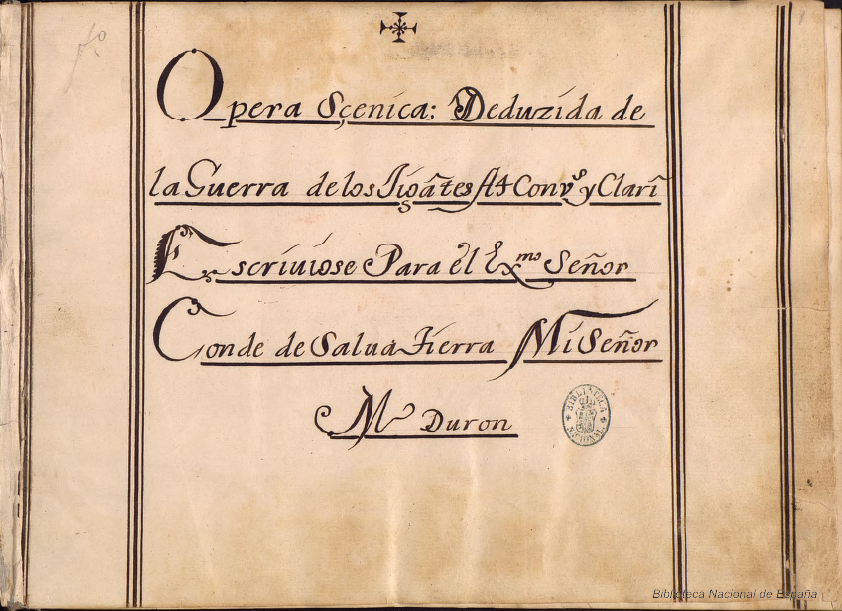 Opera Sçenica: Deduzida de
la Guerra de los Jigãtes A4 Con vs. y Clarī
Escriuiose Para el Exmo Señor
Conde de Salua Tierra Mi Señor
Mo Duron
BIBLIOTECA NACIONAL
Biblioteca Nacional de España